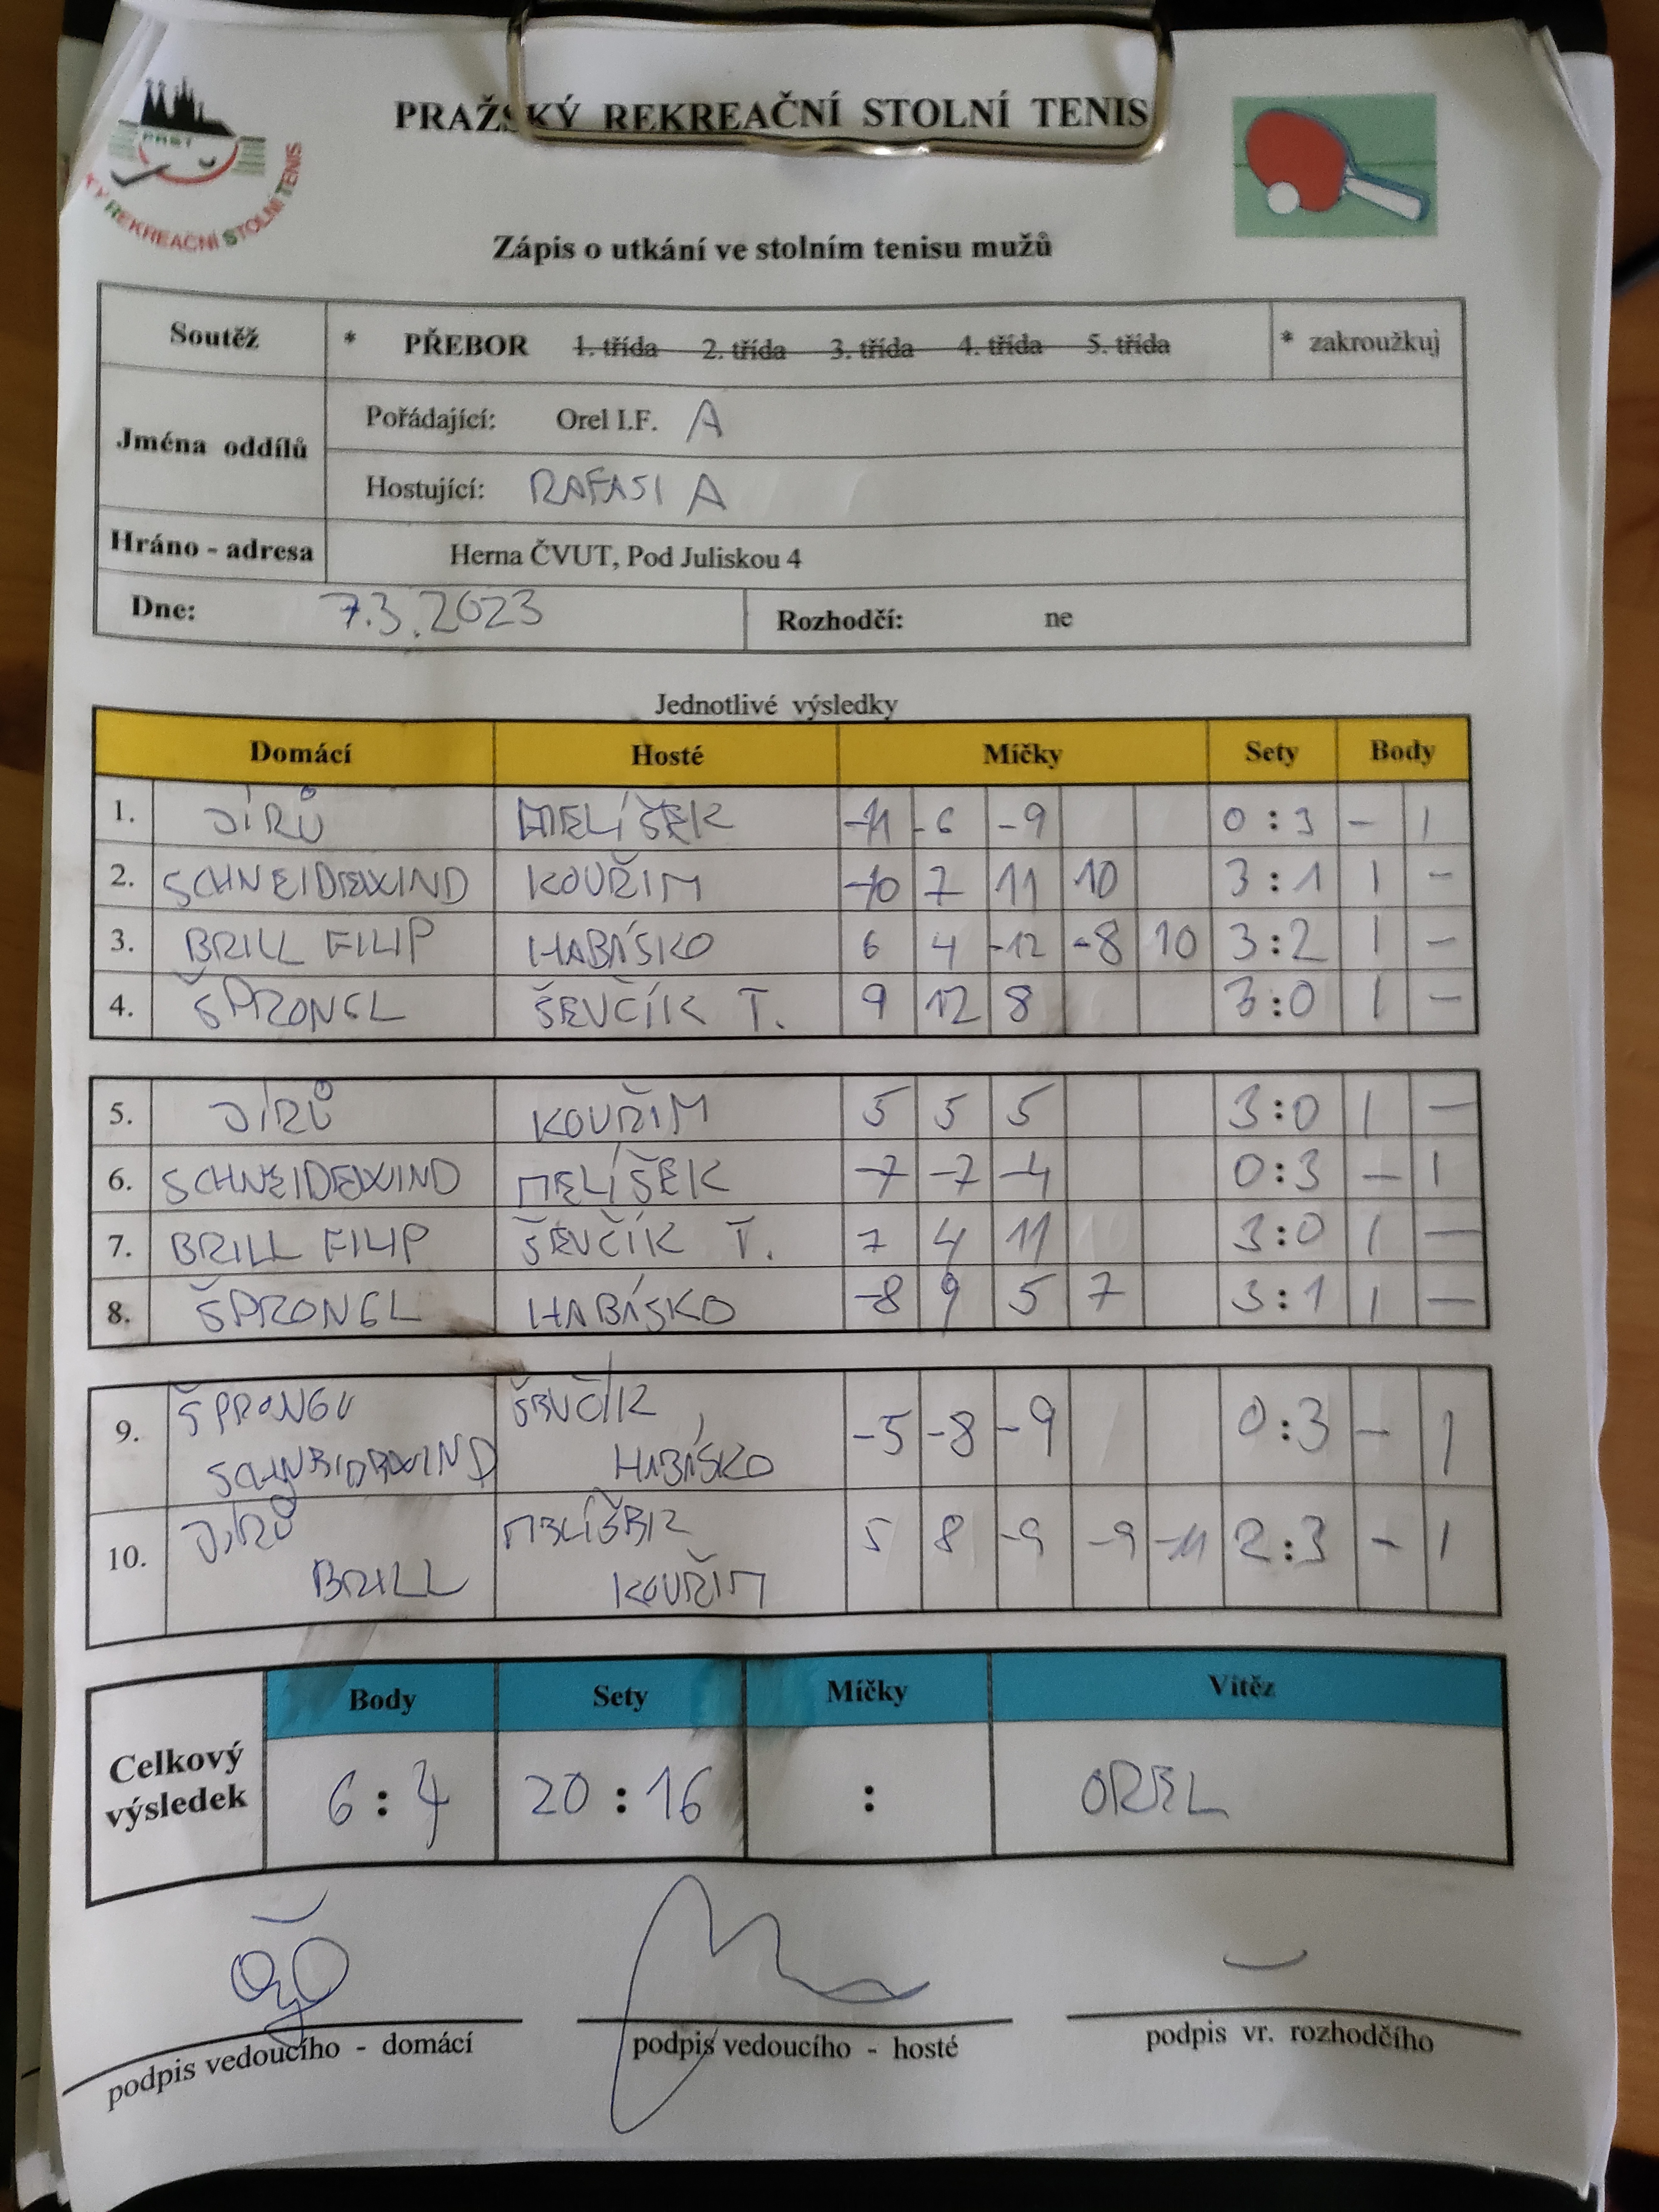 PRAŽSKÝ REKREAČNÍ STOLNÍ TENIS
PRST
REKREAČNÍ STOLNÍ TENIS
Zápis o utkání ve stolním tenisu mužů
Soutěž * PŘEBOR 1. třída 2. třída 3. třída 4. třída 5. třída * zakroužkuj
Jména oddílů
Pořádající: Orel I.F. A
Hostující: RAFASI A
Hráno - adresa Herna ČVUT, Pod Juliskou 4
Dne: 7.3.2023 Rozhodčí: ne
Jednotlivé výsledky
Domácí Hosté Míčky Sety Body
1. JÍRŮ MELÍŠEK -11 -6 -9 0 : 3 - 1
2. SCHNEIDEWIND KOUŘIM -10 7 11 10 3 : 1 1 -
3. BRILL FILIP HABÁSKO 6 4 -12 -8 10 3:2 1 -
4. ŠPRONGL ŠEVČÍK T. 9 12 8 3:0 1 -
5. JÍRŮ KOUŘIM 5 5 5 3:0 1 -
6. SCHNEIDEWIND MELÍŠEK -7 -7 -4 0:3 - 1
7. BRILL FILIP ŠEVČÍK T. 7 4 11 3:0 1 -
8. ŠPRONGL HABÁSKO -8 9 5 7 3:1 1 -
9. ŠPRONGL ŠEVČÍK -5 -8 -9 0:3 - 1
SCHNEIDEWIND HABÁSKO
10. JÍRŮ MELÍŠEK 5 8 -9 -9 -11 2:3 - 1
BRILL KOUŘIM
Body Sety Míčky Vítěz
Celkový výsledek 6 : 4 20 : 16 : OREL
podpis vedoucího - domácí podpis vedoucího - hosté podpis vr. rozhodčího